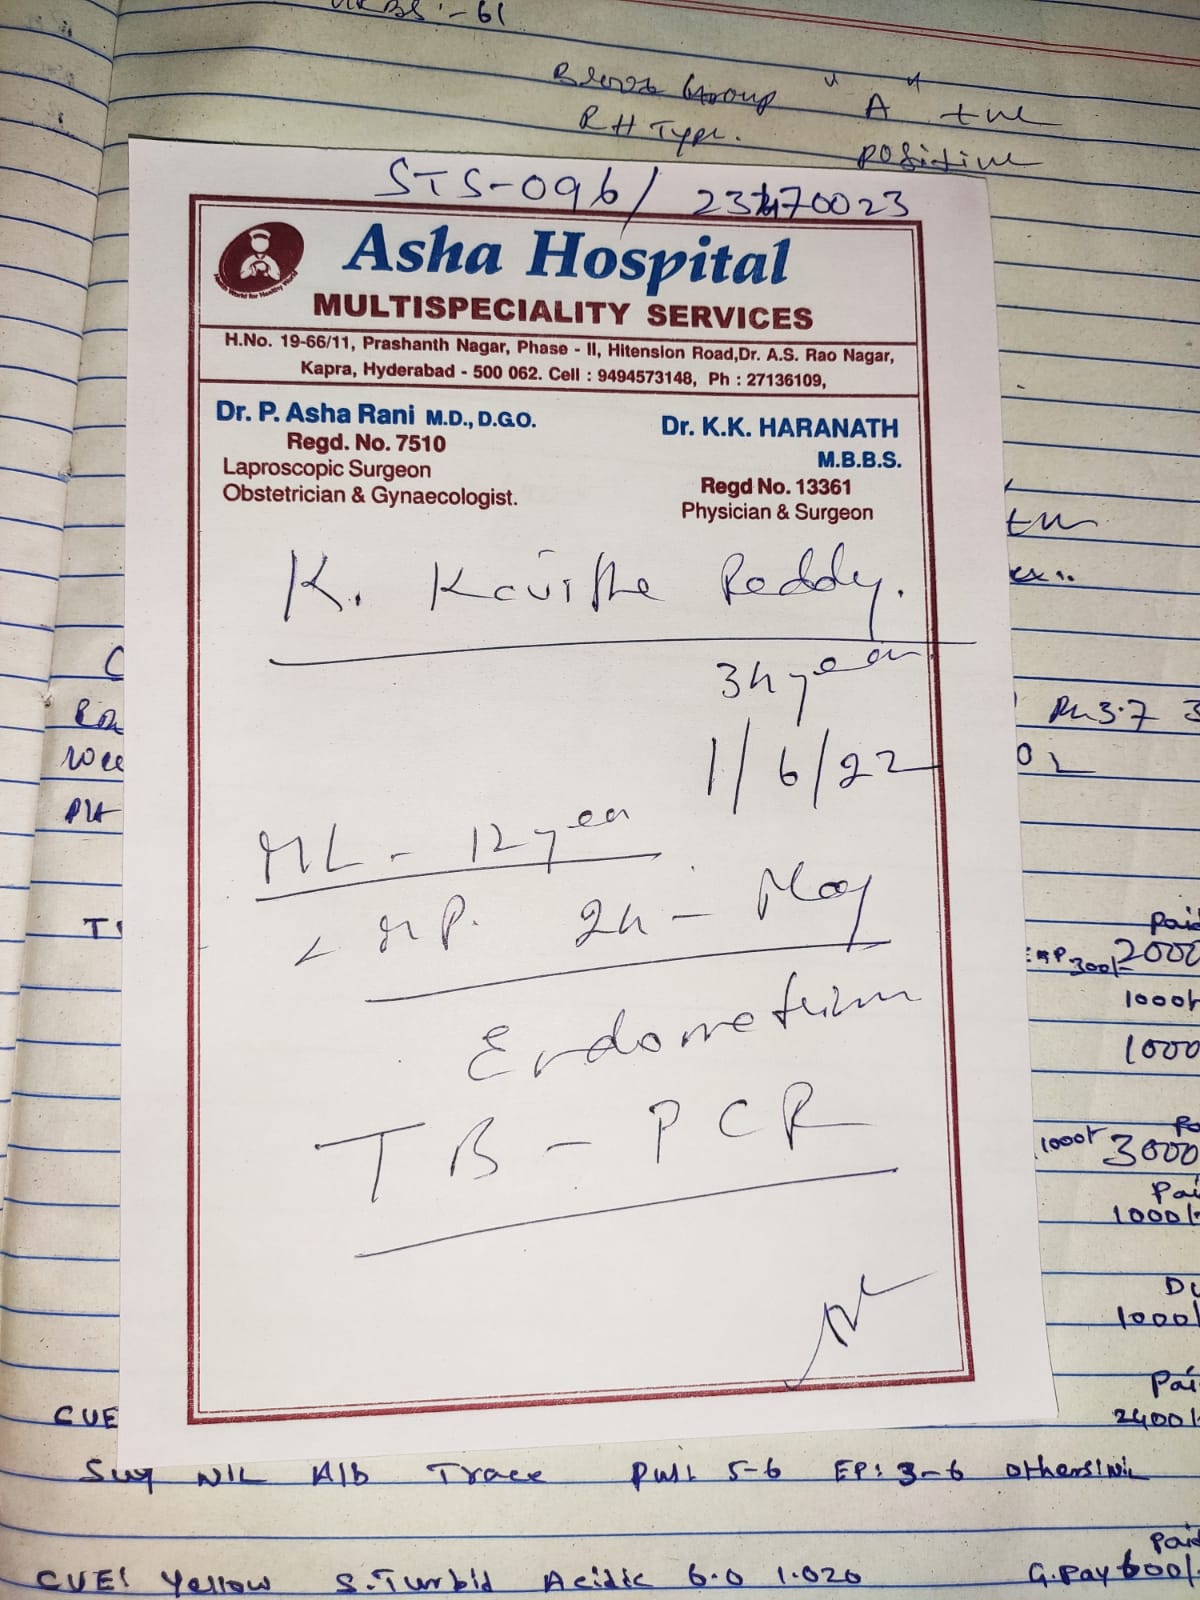 RBS :- 61
Blood Group "A" +ve
RH Type. positive
STS-096/ 23470023
Asha Hospital
MULTISPECIALITY SERVICES
H.No. 19-66/11, Prashanth Nagar, Phase - II, Hitension Road,Dr. A.S. Rao Nagar,
Kapra, Hyderabad - 500 062. Cell : 9494573148, Ph : 27136109,
Dr. P. Asha Rani M.D., D.G.O.
Regd. No. 7510
Laproscopic Surgeon
Obstetrician & Gynaecologist.
Dr. K.K. HARANATH
M.B.B.S.
Regd No. 13361
Physician & Surgeon
+ve
K. Kavitha Reddy.
34 year
1/6/22
ML - 12 year
LMP. 24 - May
Endometrium
TB - PCR
3.7
Paid
2000
300/-
1000/-
1000
1000/- 3000
Pai
1000/-
Du
1000/-
Pai
CUE 2400/-
Sug NIL Alb Trace Pus: 5-6 EP: 3-6 others: Nil
Paid
CUE: Yellow S.Turbid Acidic 6.0 1.020 G.Pay 600/-